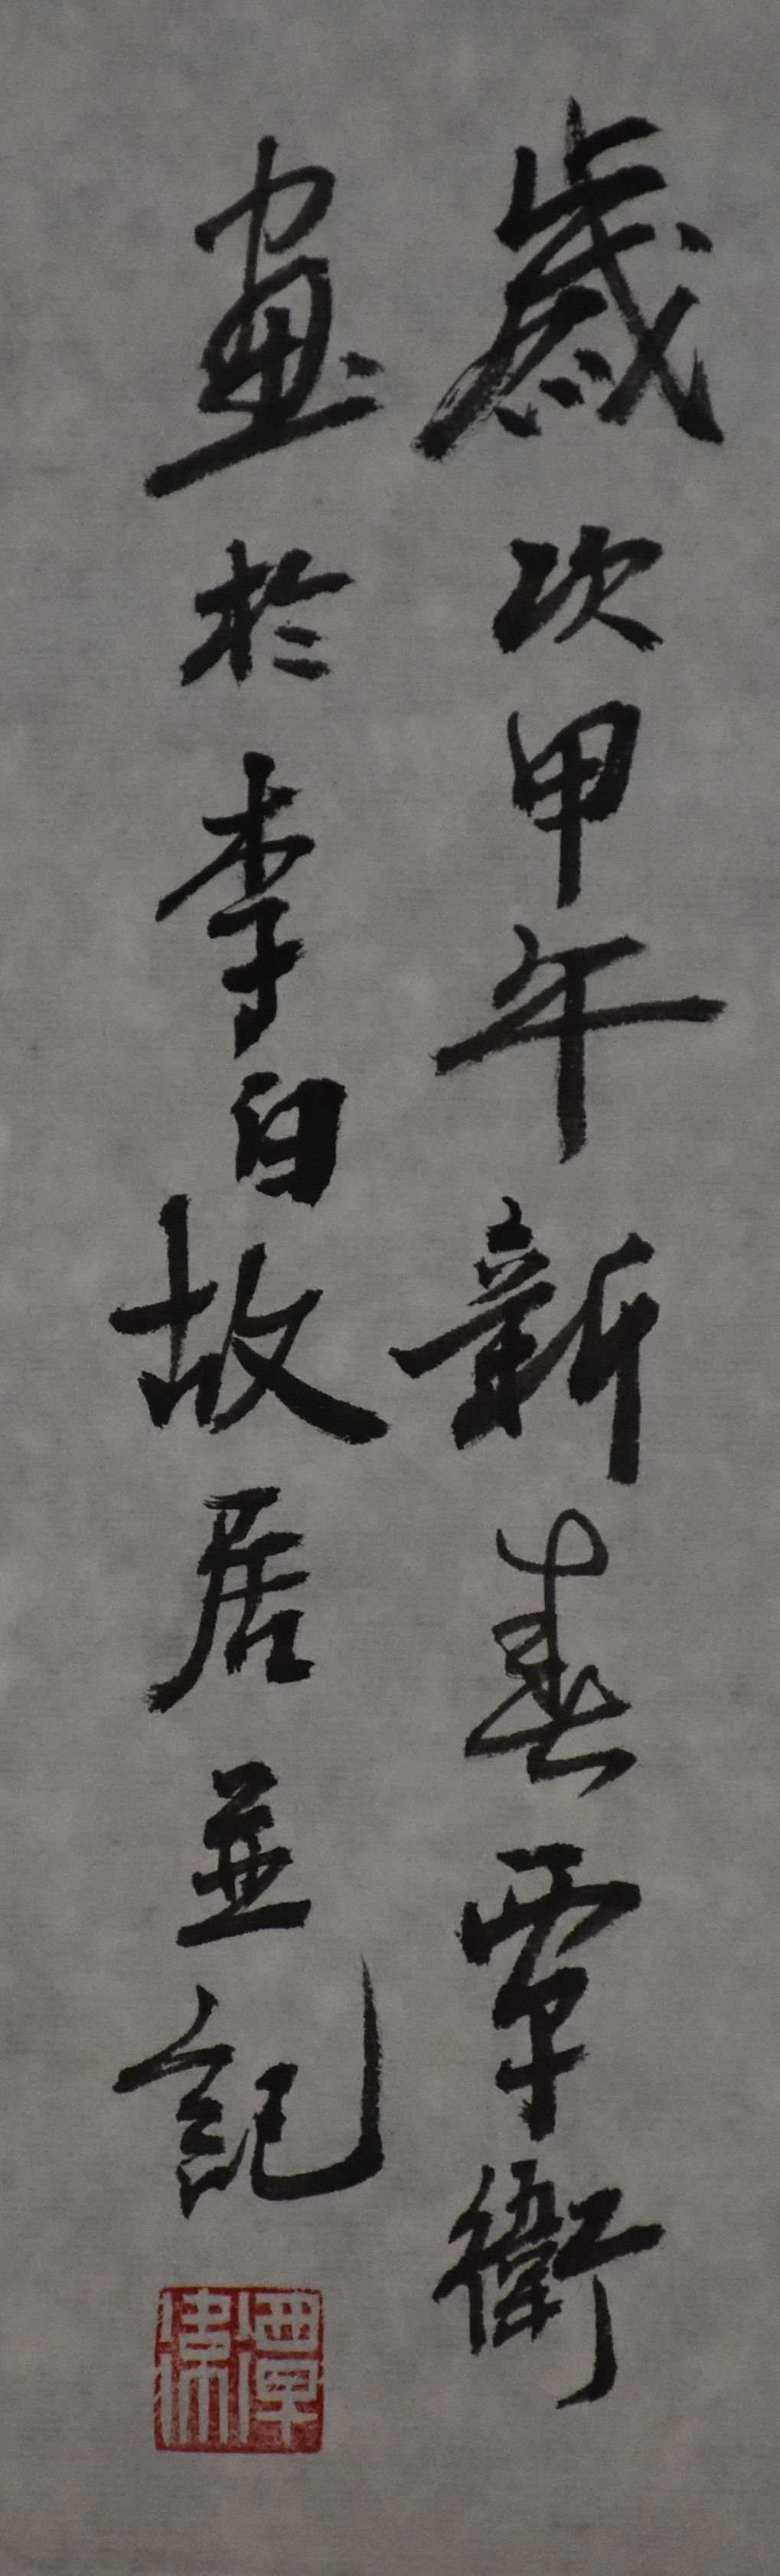 歲次甲午新春覃衛
畫於李白故居並記